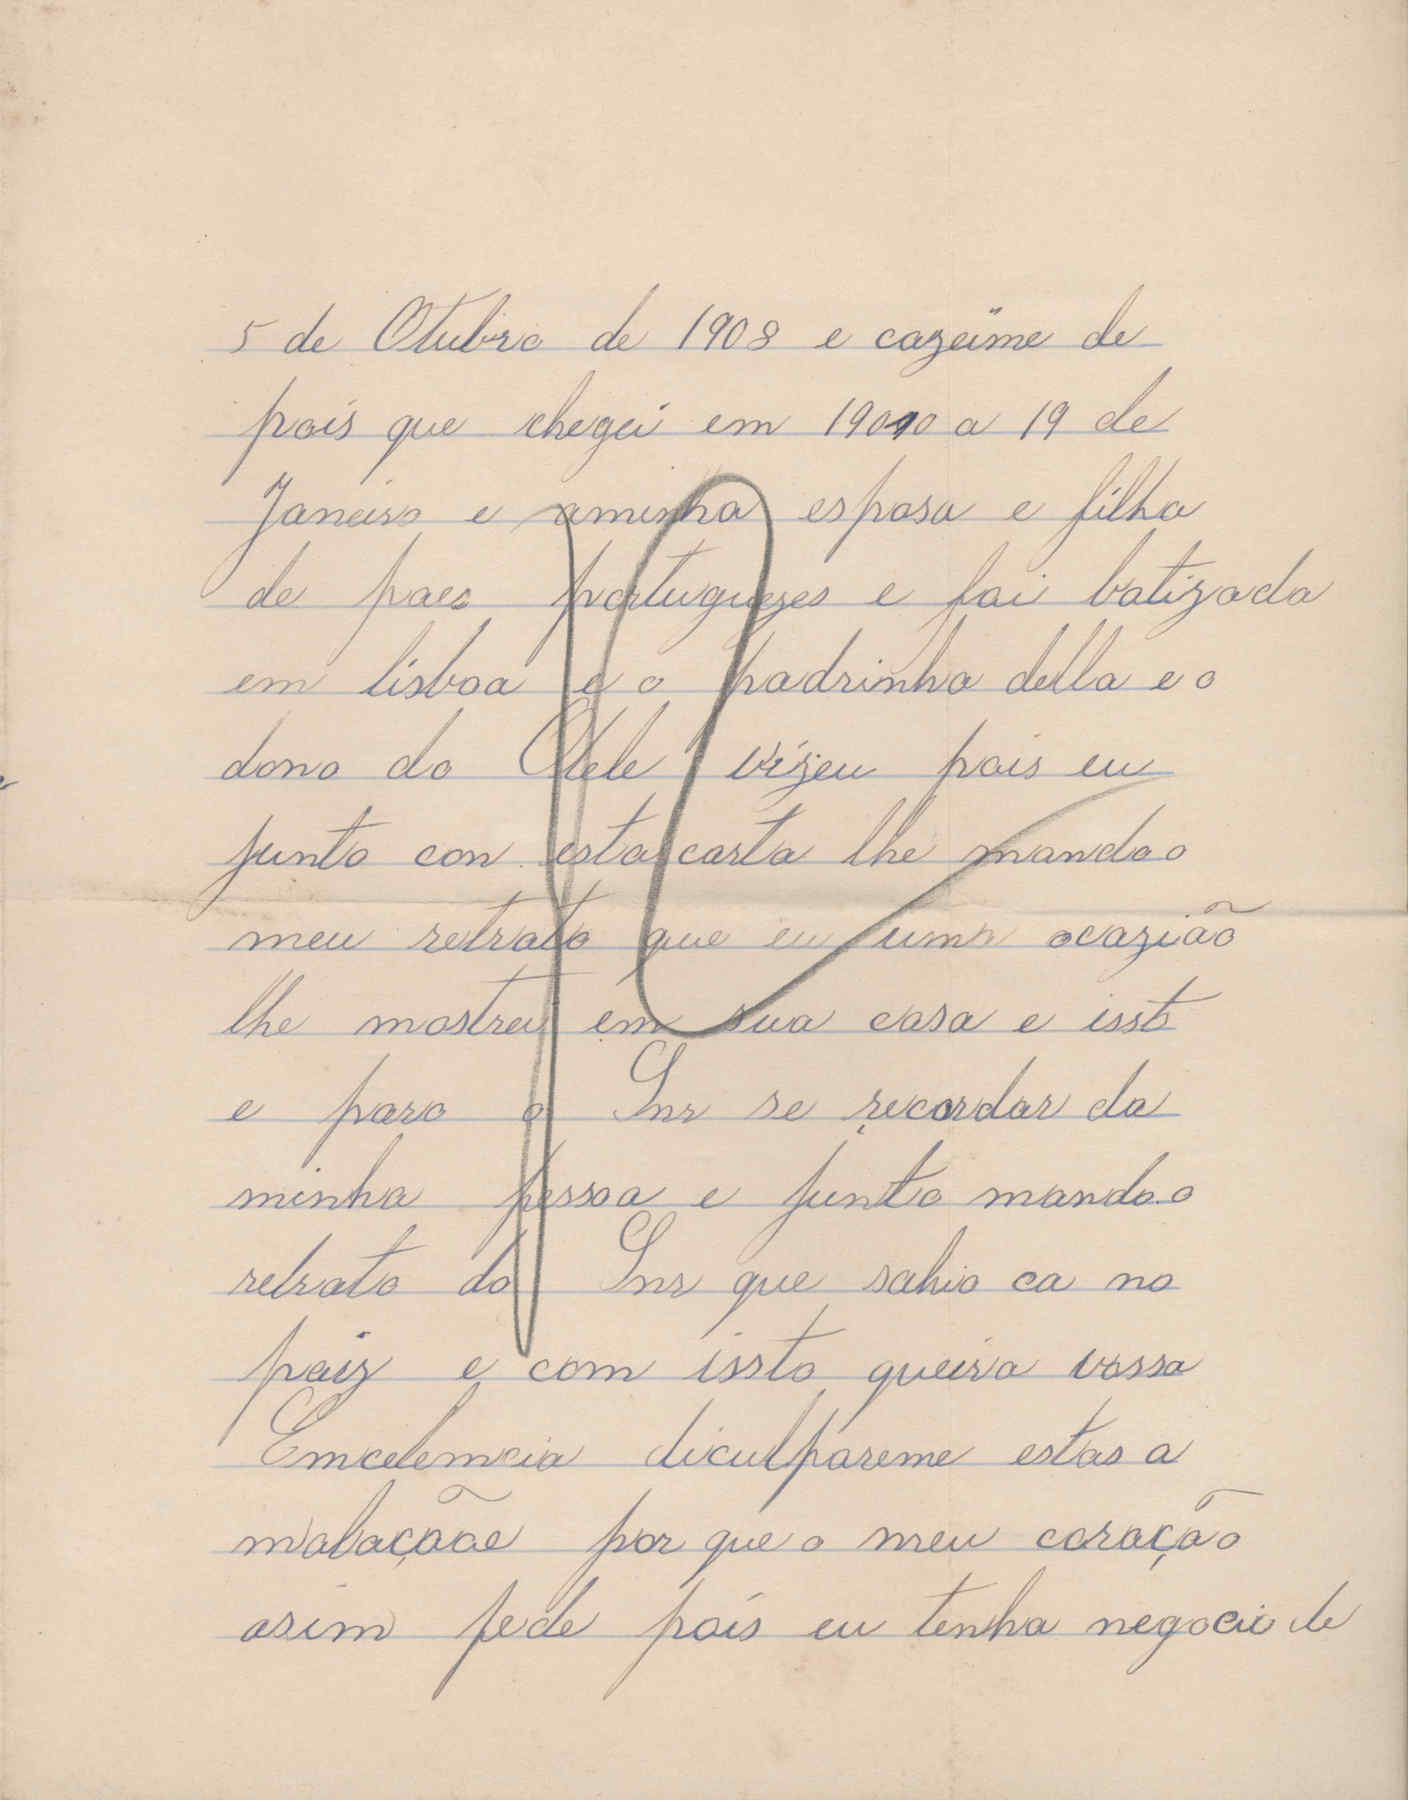 5 de Otubro de 1908 e cazeime de
pois que chegei em 1910 a 19 de
Janeiro e aminha esposa e filha
de paes portuguezes e foi batizada
em lisboa e o padrinho della e o
dono do Otele vizeu pois eu
junto con esta carta lhe mando o
meu retrato que eu uma ocazião
lhe mostrei em sua casa e issto
e para o Snr se recordar da
minha pessoa e junto mando o
retrato do Snr que sahio ca no
paiz e com issto queira vossa
Emcelemcia diculpareme estas a
malaçãoe por que o meu coração
asim pede pois eu tenho negocio de